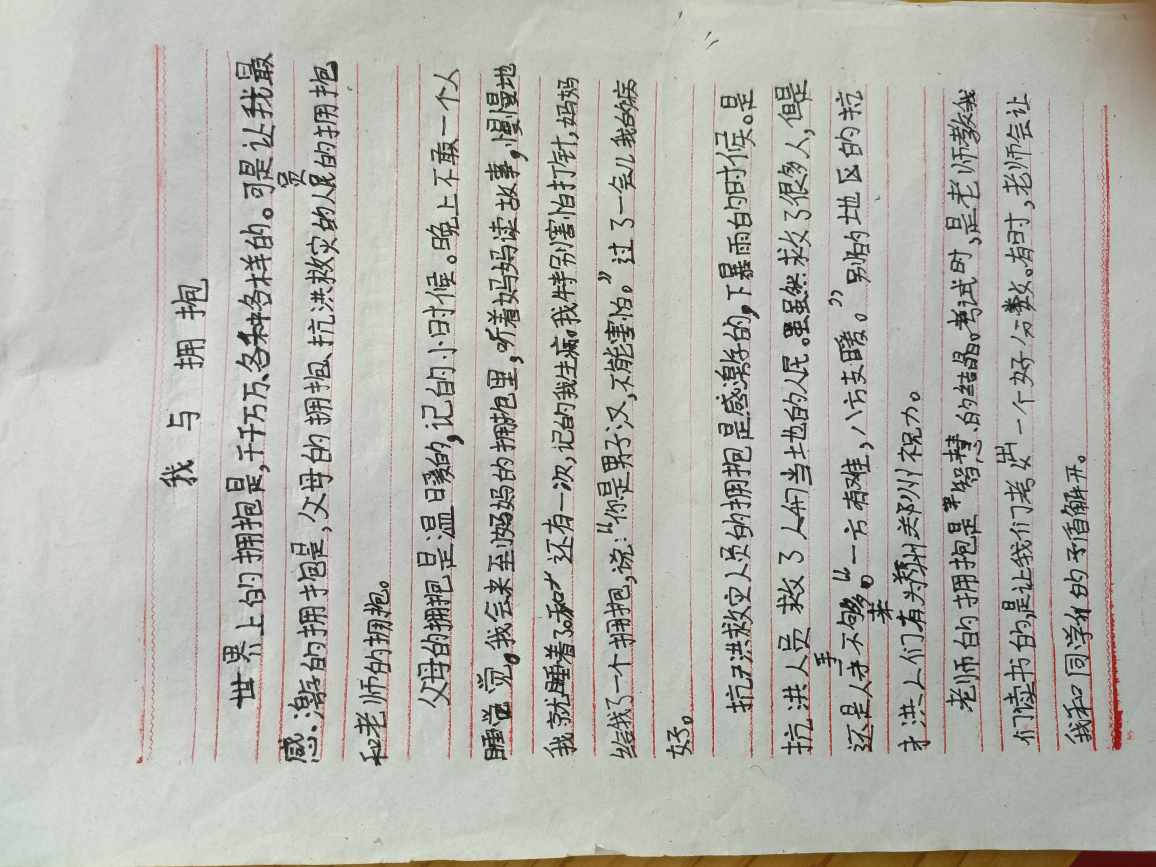 我与拥抱
世界上的拥抱是,千千万万、各种各样的。可是让我最
感激的拥抱是,父母的拥抱、抗洪救灾的人员的拥抱
和老师的拥抱。
父母的拥抱是温暖的,记的小时候。晚上不敢一个人
睡觉。我会来到妈妈的拥抱里,听着妈妈读故事,慢慢地
我就睡着了。还有一次,记的我生病。我特别害怕打针,妈妈
给我了一个拥抱,说:“你是男子汉,不能害怕。”过了一会儿我的病
好。
抗洪救灾人员的拥抱是感激的,下暴雨的时候。是
抗洪人员救了人们当地的人民。虽然救了很多人,但是
还是人手不够。“一方有难,八方支援。”别的地区的抗
洪人们有来为郑州祝力。
老师的拥抱是智慧的结晶。考试时,是老师教我
们读书的,是让我们考出一个好分数。有时,老师会让
我和同学的矛盾解开。